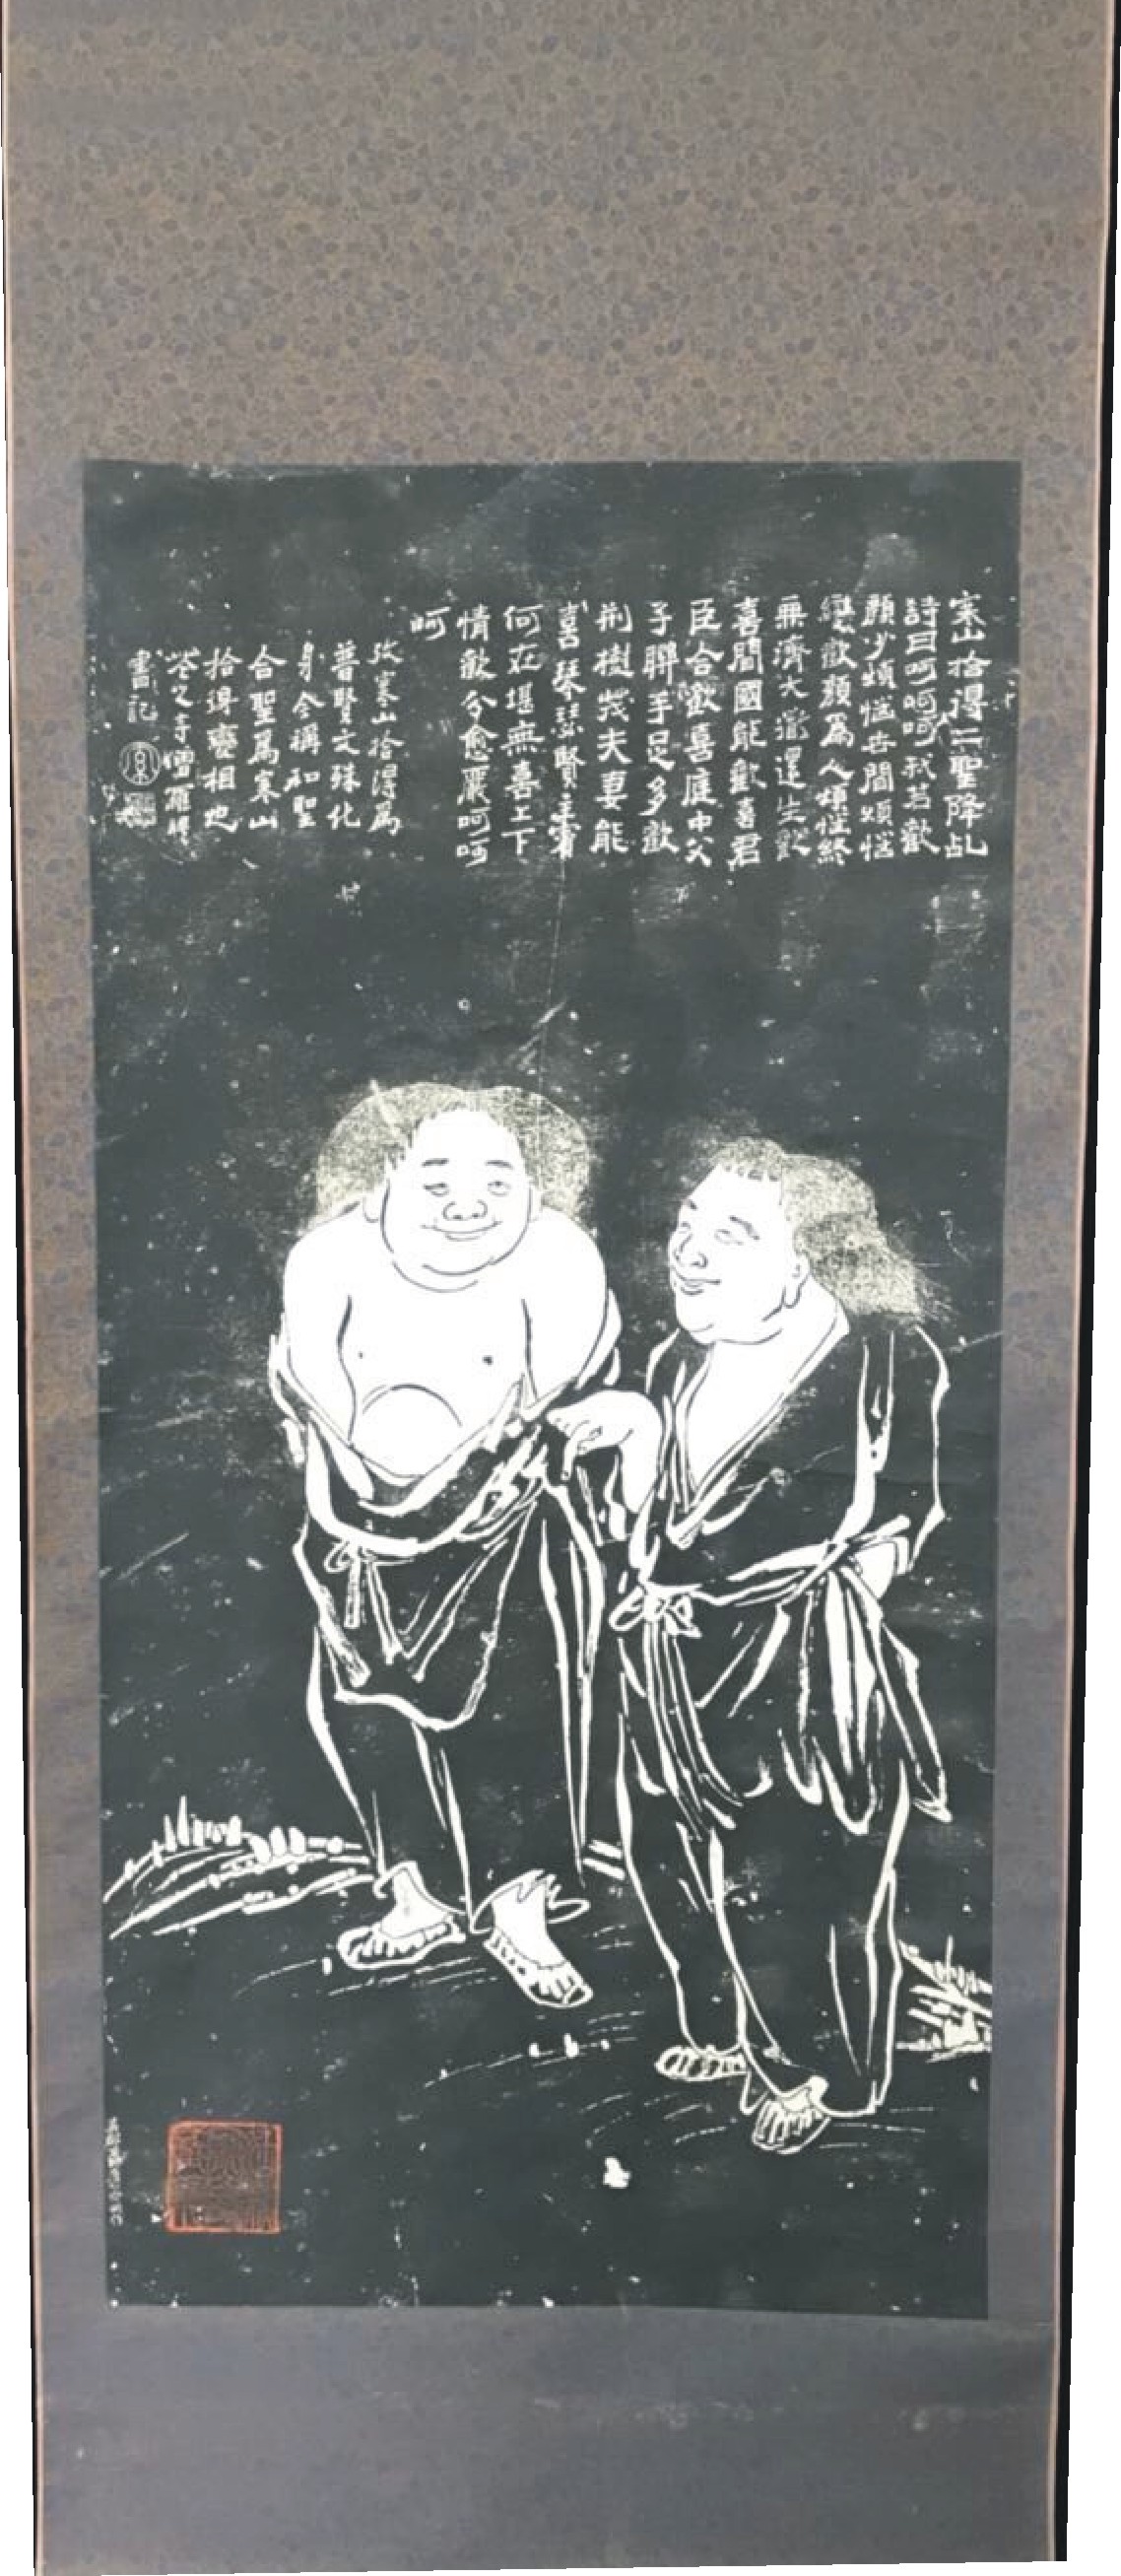 寒山拾得二聖降乩
詩曰呵呵呵我若歡
顏少煩惱世間煩惱
變歡顏為人煩惱終
無濟大道還生歡
喜間國能歡喜君
臣合歡喜庭中父
子聯手足多歡
荊樹茂夫妻能
喜琴瑟賢主賓
何在堪無喜上下
情歡兮愈嚴呵呵
呵
攷寒山拾得為
普賢文殊化
身今稱和聖
合聖為寒山
拾得變相也
寺僧羅聘
書記